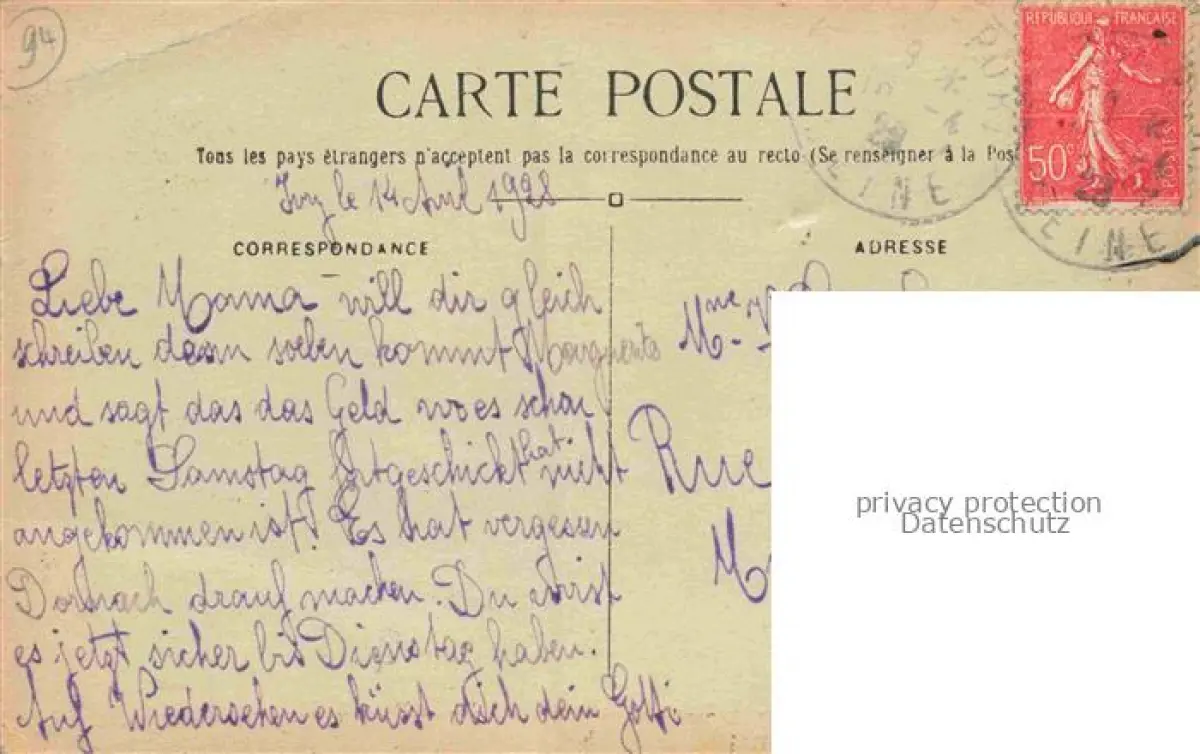 94
RÉPUBLIQUE FRANÇAISE
50c
POSTES
CARTE POSTALE
Tous les pays étrangers n'acceptent pas la correspondance au recto (Se renseigner à la Pos
Ivry le 14 Avril 1928
EINE
EINE
CORRESPONDANCE
ADRESSE
Liebe Mama will dir gleich
schreiben denn soeben kommt Marguerite
und sagt das das Geld wo es schon
letzten Samstag fortgeschickt hat nicht
angekommen ist! Es hat vergessen
Dornach drauf machen. Du wirst
es jetzt sicher bis Dienstag haben.
Auf Wiedersehen es küsst dich dein
Mme
Rue
privacy protection
Datenschutz